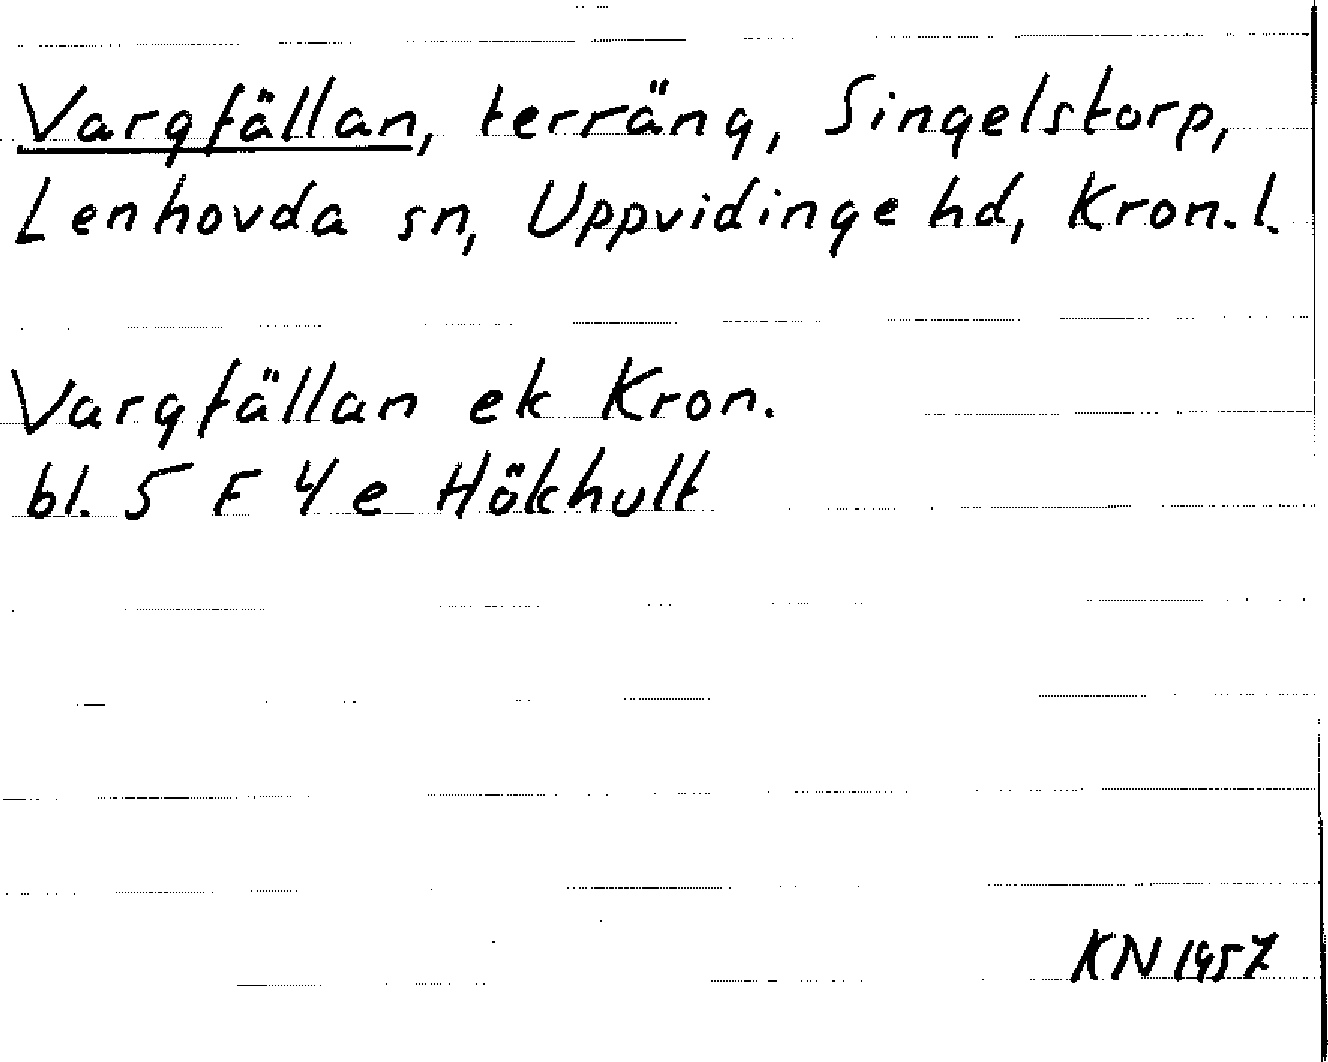 Vargfällan, terräng, Singelstorp,
Lenhovda sn, Uppvidinge hd, Kron. l.
Vargfällan ek Kron.
bl. 5 F 4 e Hökhult
KN 1957